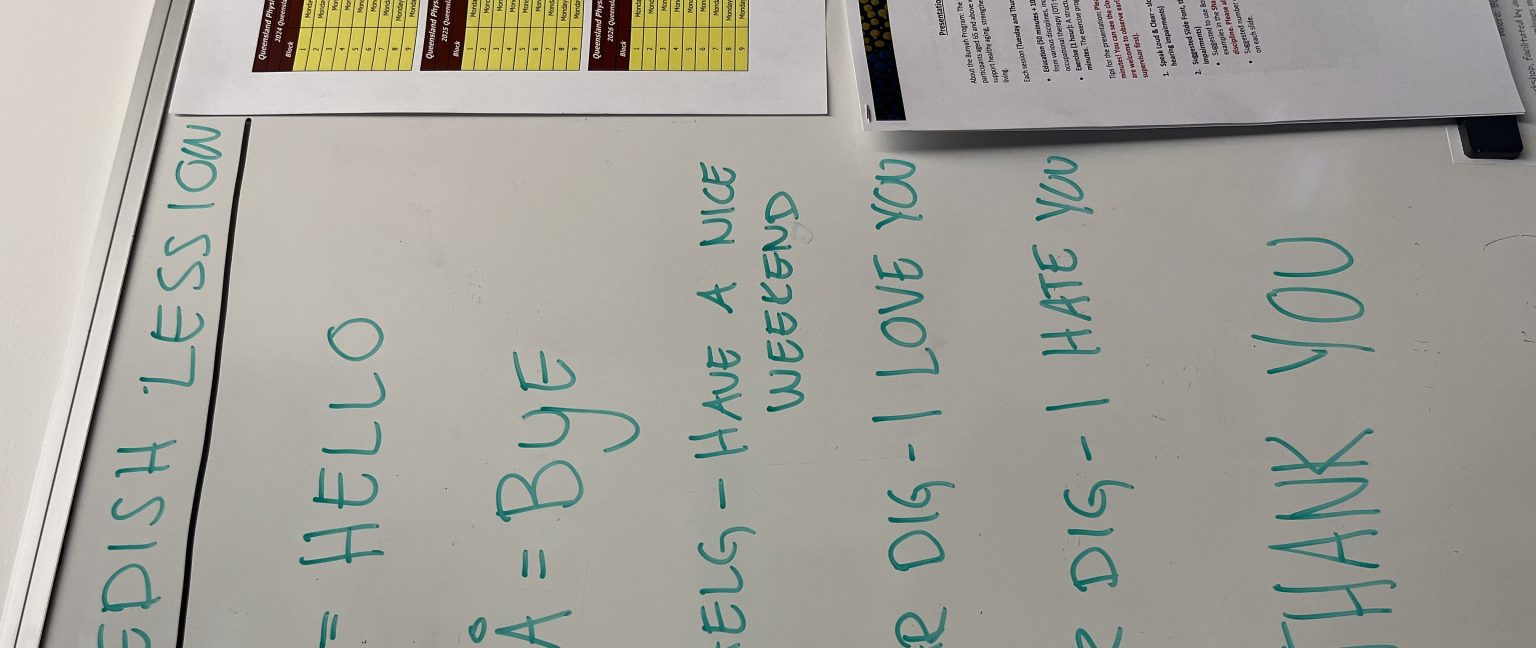 EDISH LESSION
= HELLO
Å = BYE
HELG - HAVE A NICE
WEEKEND
R DIG - I LOVE YOU
R DIG - I HATE YOU
THANK YOU
Queensland Physi
2024 Queensla
Block
1 Monda
2 Monda
3 Mond
4 Mon
5 Mon
6 Mon
7 Mond
8 Monday
9 Monda
Queensland Phys
2025 Queensl
Block
1
2
3
4
5
6
7
8
9
Queensland Phys
2026 Queensla
Block
1
2
3
4
5
6
7
8
9
Presentation
About the Burrah Program: The
participants aged 65 and above
support healthy aging, strengthe
living.
Each session (Tuesday and Thur
• Education (50 minutes + 10
from various disciplines, inc
occupational therapy (OT)
• Exercise (1 hour): A structu
minutes. The exercise prog
Tips for the presentations:
minutes! You can see the
are welcome to observe earl
supervisor first).
1. Speak Loud & Clear – slo
hearing impairments)
2. Suggested Slide Font, th
impairments)
• Suggested to use
examples in the Sha
discipline. Please
• Suggested number
on each side.